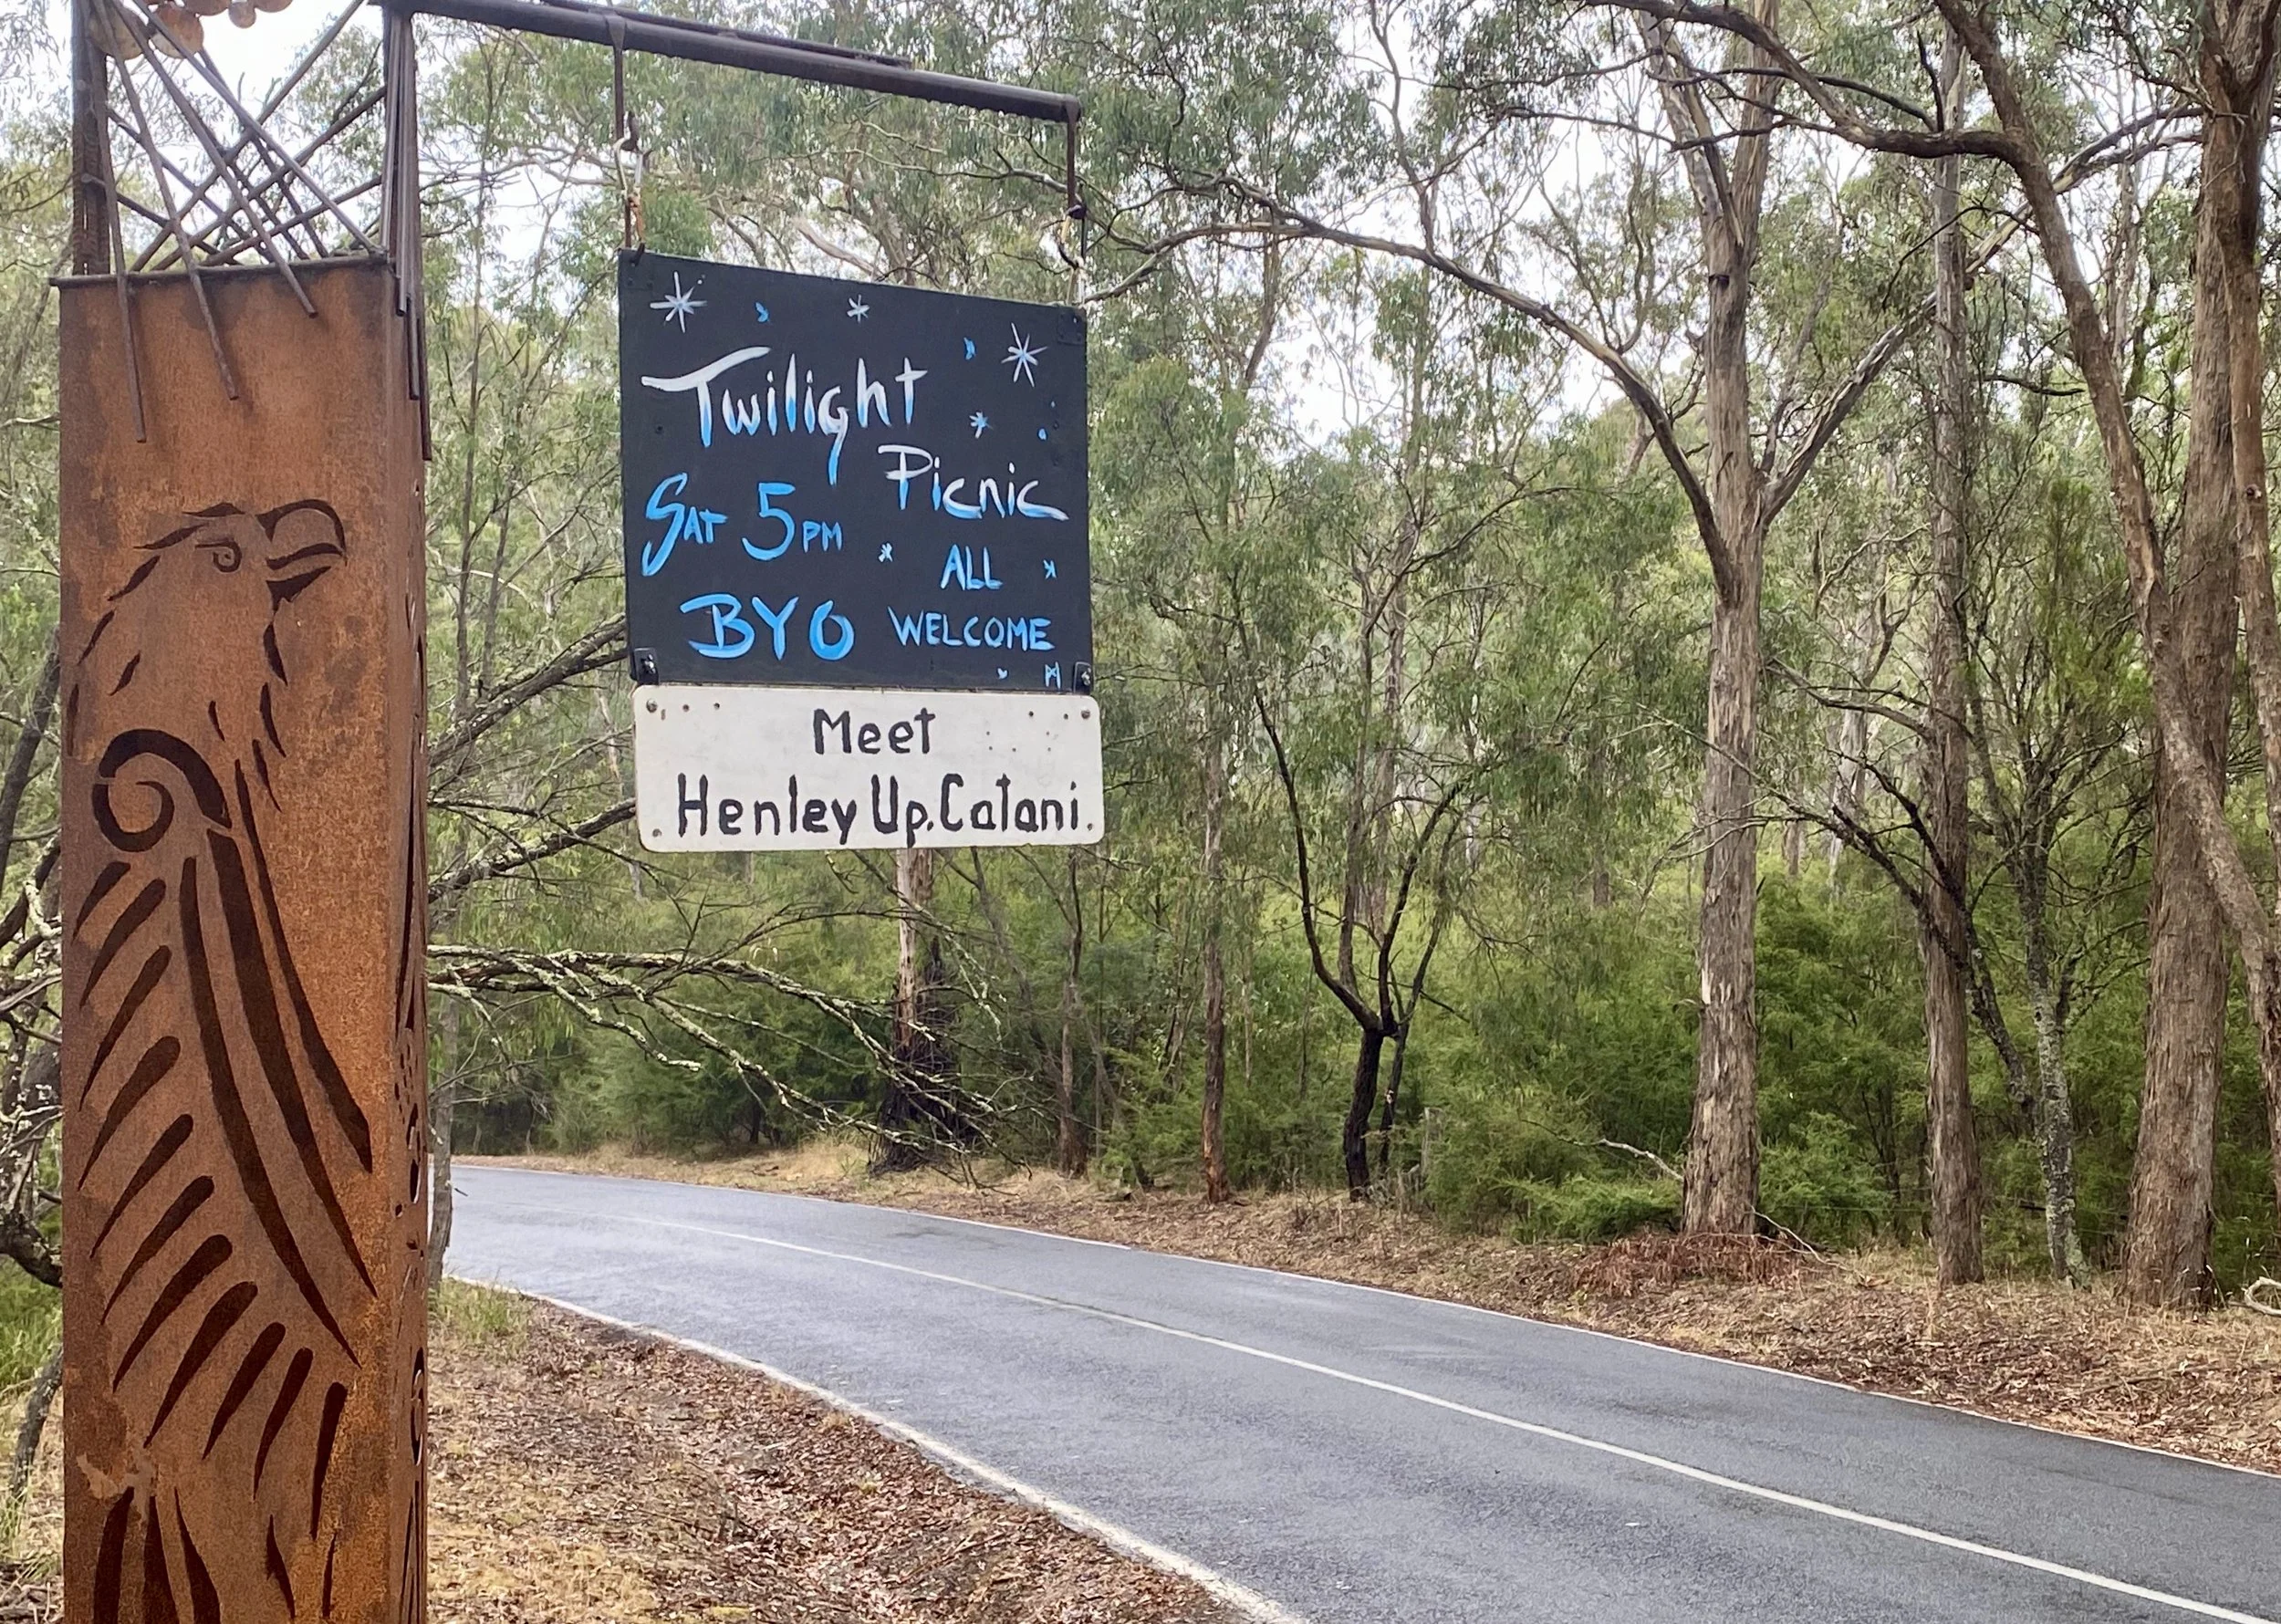 Twilight
Picnic
SAT 5PM
ALL
BYO WELCOME
Meet
Henley Up.Catani.